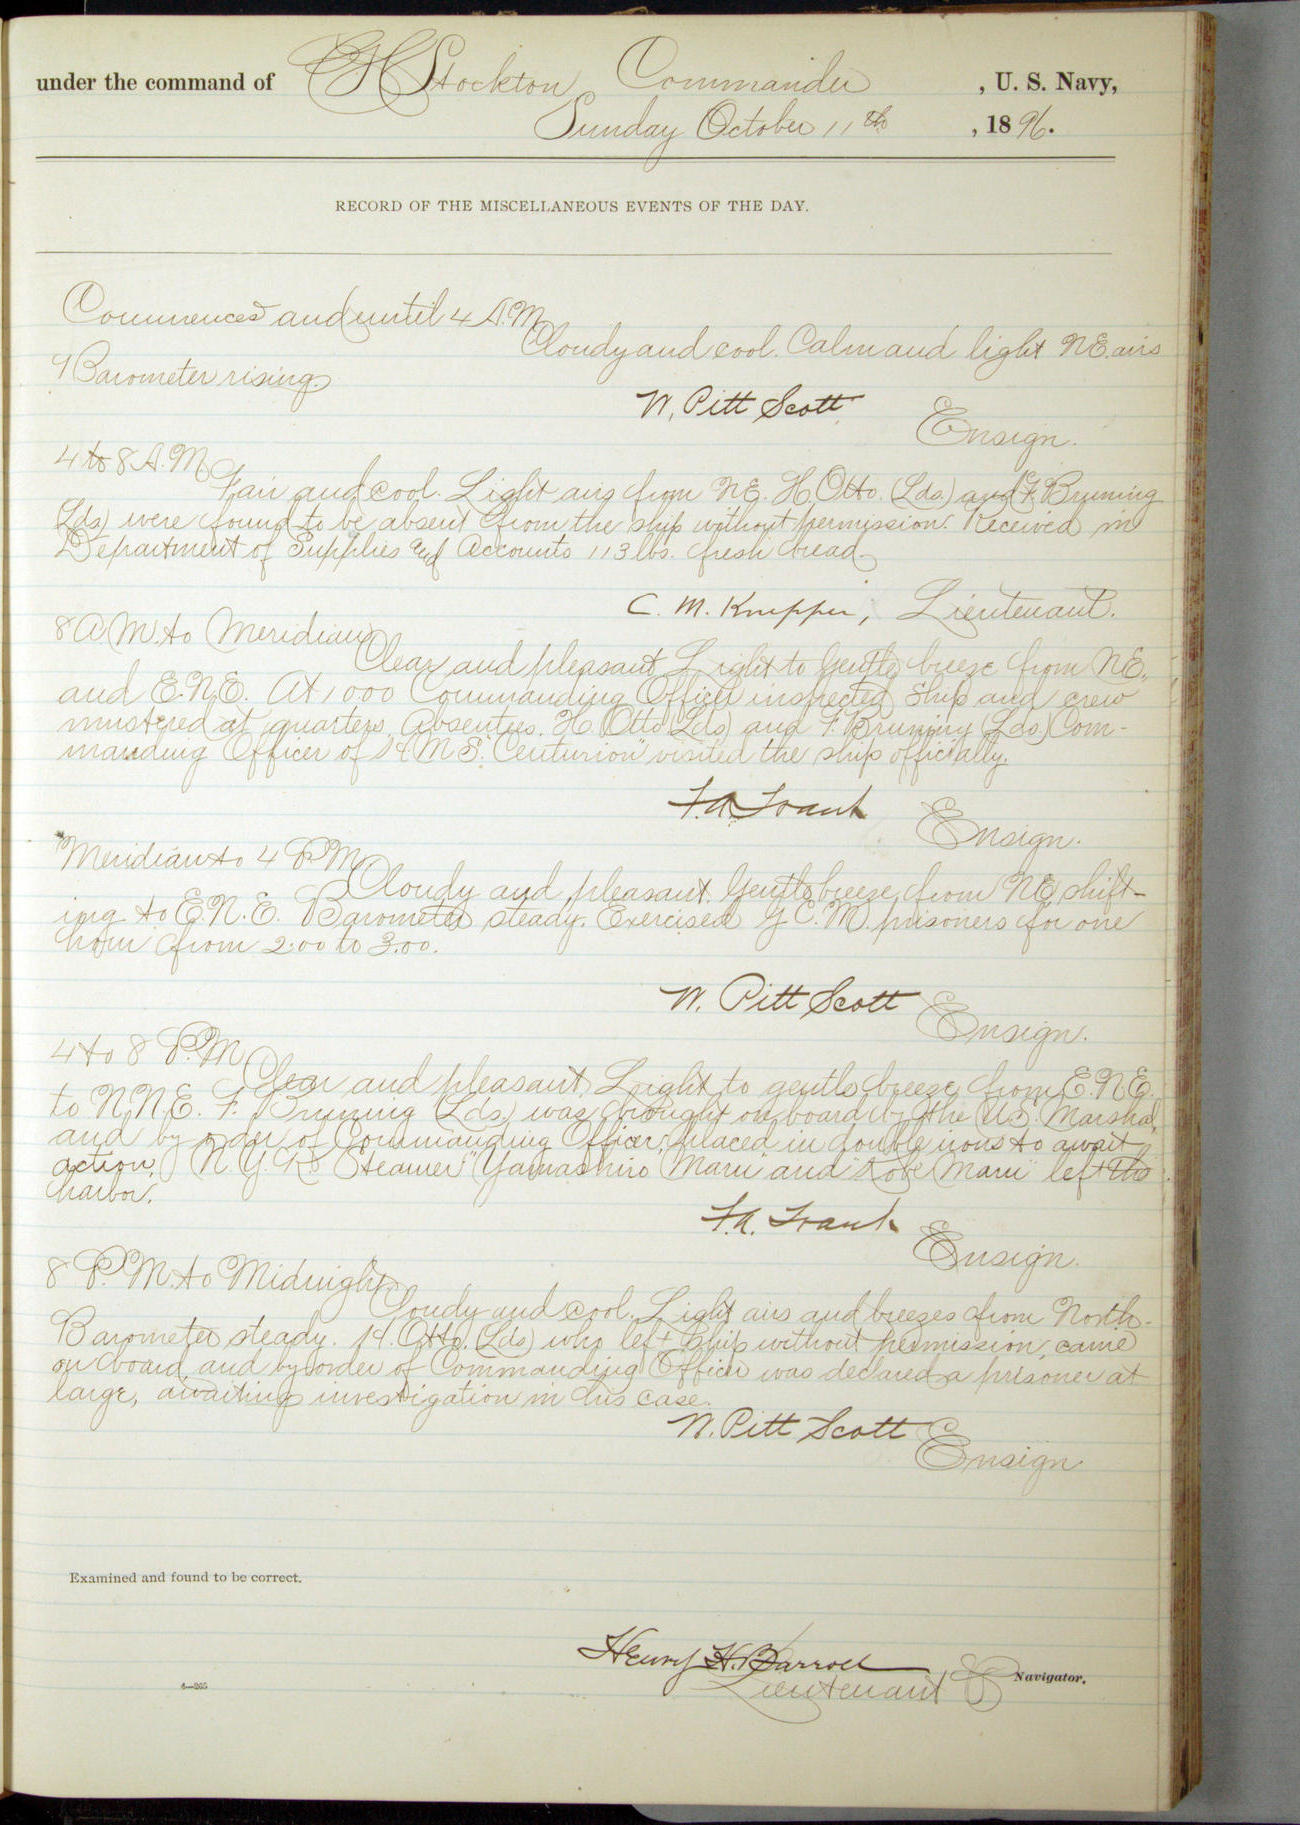 under the command of C H Stockton Commander , U. S. Navy,
Sunday October 11th , 1896.
RECORD OF THE MISCELLANEOUS EVENTS OF THE DAY.
Commences and until 4 A.M.
Cloudy and cool. Calm and light NE. airs
Barometer rising.
W. Pitt Scott Ensign.
4 to 8 A.M.
Fair and cool. Light airs from NE. H. Otto. (Lds.) and F. Bruning
(Lds) were found to be absent from the ship without permission. Received in
Department of Supplies and Accounts 113 lbs. fresh bread.
C. M. Knepper, Lieutenant.
8 A.M. to Meridian
Clear and pleasant. Light to gentle breeze from NE.
and E.N.E. At 1000 Commanding Officer inspected ship and crew
mustered at quarters. Absentees. H. Otto (Lds) and F. Bruning (Lds.) Com-
manding Officer of H.M.S. "Centurion" visited the ship officially.
F.A. Traut Ensign.
Meridian to 4 P.M.
Cloudy and pleasant. Gentle breeze from NE, shift-
ing to E.N.E. Barometer steady. Exercised G.C.M. prisoners for one
hour from 2.00 to 3.00.
W. Pitt Scott Ensign.
4 to 8 P.M.
Clear and pleasant. Light to gentle breeze from E.N.E.
to N.N.E. F. Bruning (Lds.) was brought on board by the U.S. Marshal,
and by order of Commanding Officer, placed in double irons to await
action. N.Y.K. Steamer "Yamashiro Maru" and "Kobe Maru" left the
harbor.
F.A. Traut Ensign.
8 P.M. to Midnight.
Cloudy and cool. Light airs and breezes from North.
Barometer steady. H. Otto. (Lds) who left ship without permission, came
on board and by order of Commanding Officer was declared a prisoner at
large, awaiting investigation in his case.
W. Pitt Scott Ensign
Examined and found to be correct.
Henry H. Barroll
Lieutenant Navigator.
4—265